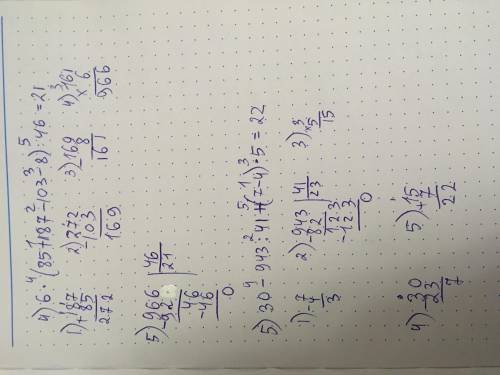 4) 6 · (85 + 187 - 103 - 8) : 46 = 21
4 1 2 3 5
1) + 187
85
272
2) - 272
103
169
3) - 169
8
161
4) × 161
3
6
966
5) 966 | 46
- 92 21
46
- 46
0
5) 30 - 943 : 41 + (7 - 4) · 5 = 22
4 2 5 1 3
1) - 7
4
3
2) 943 | 41
- 82 23
123
- 123
0
3) × 3
5
15
4) - 30
23
7
5) + 15
7
22